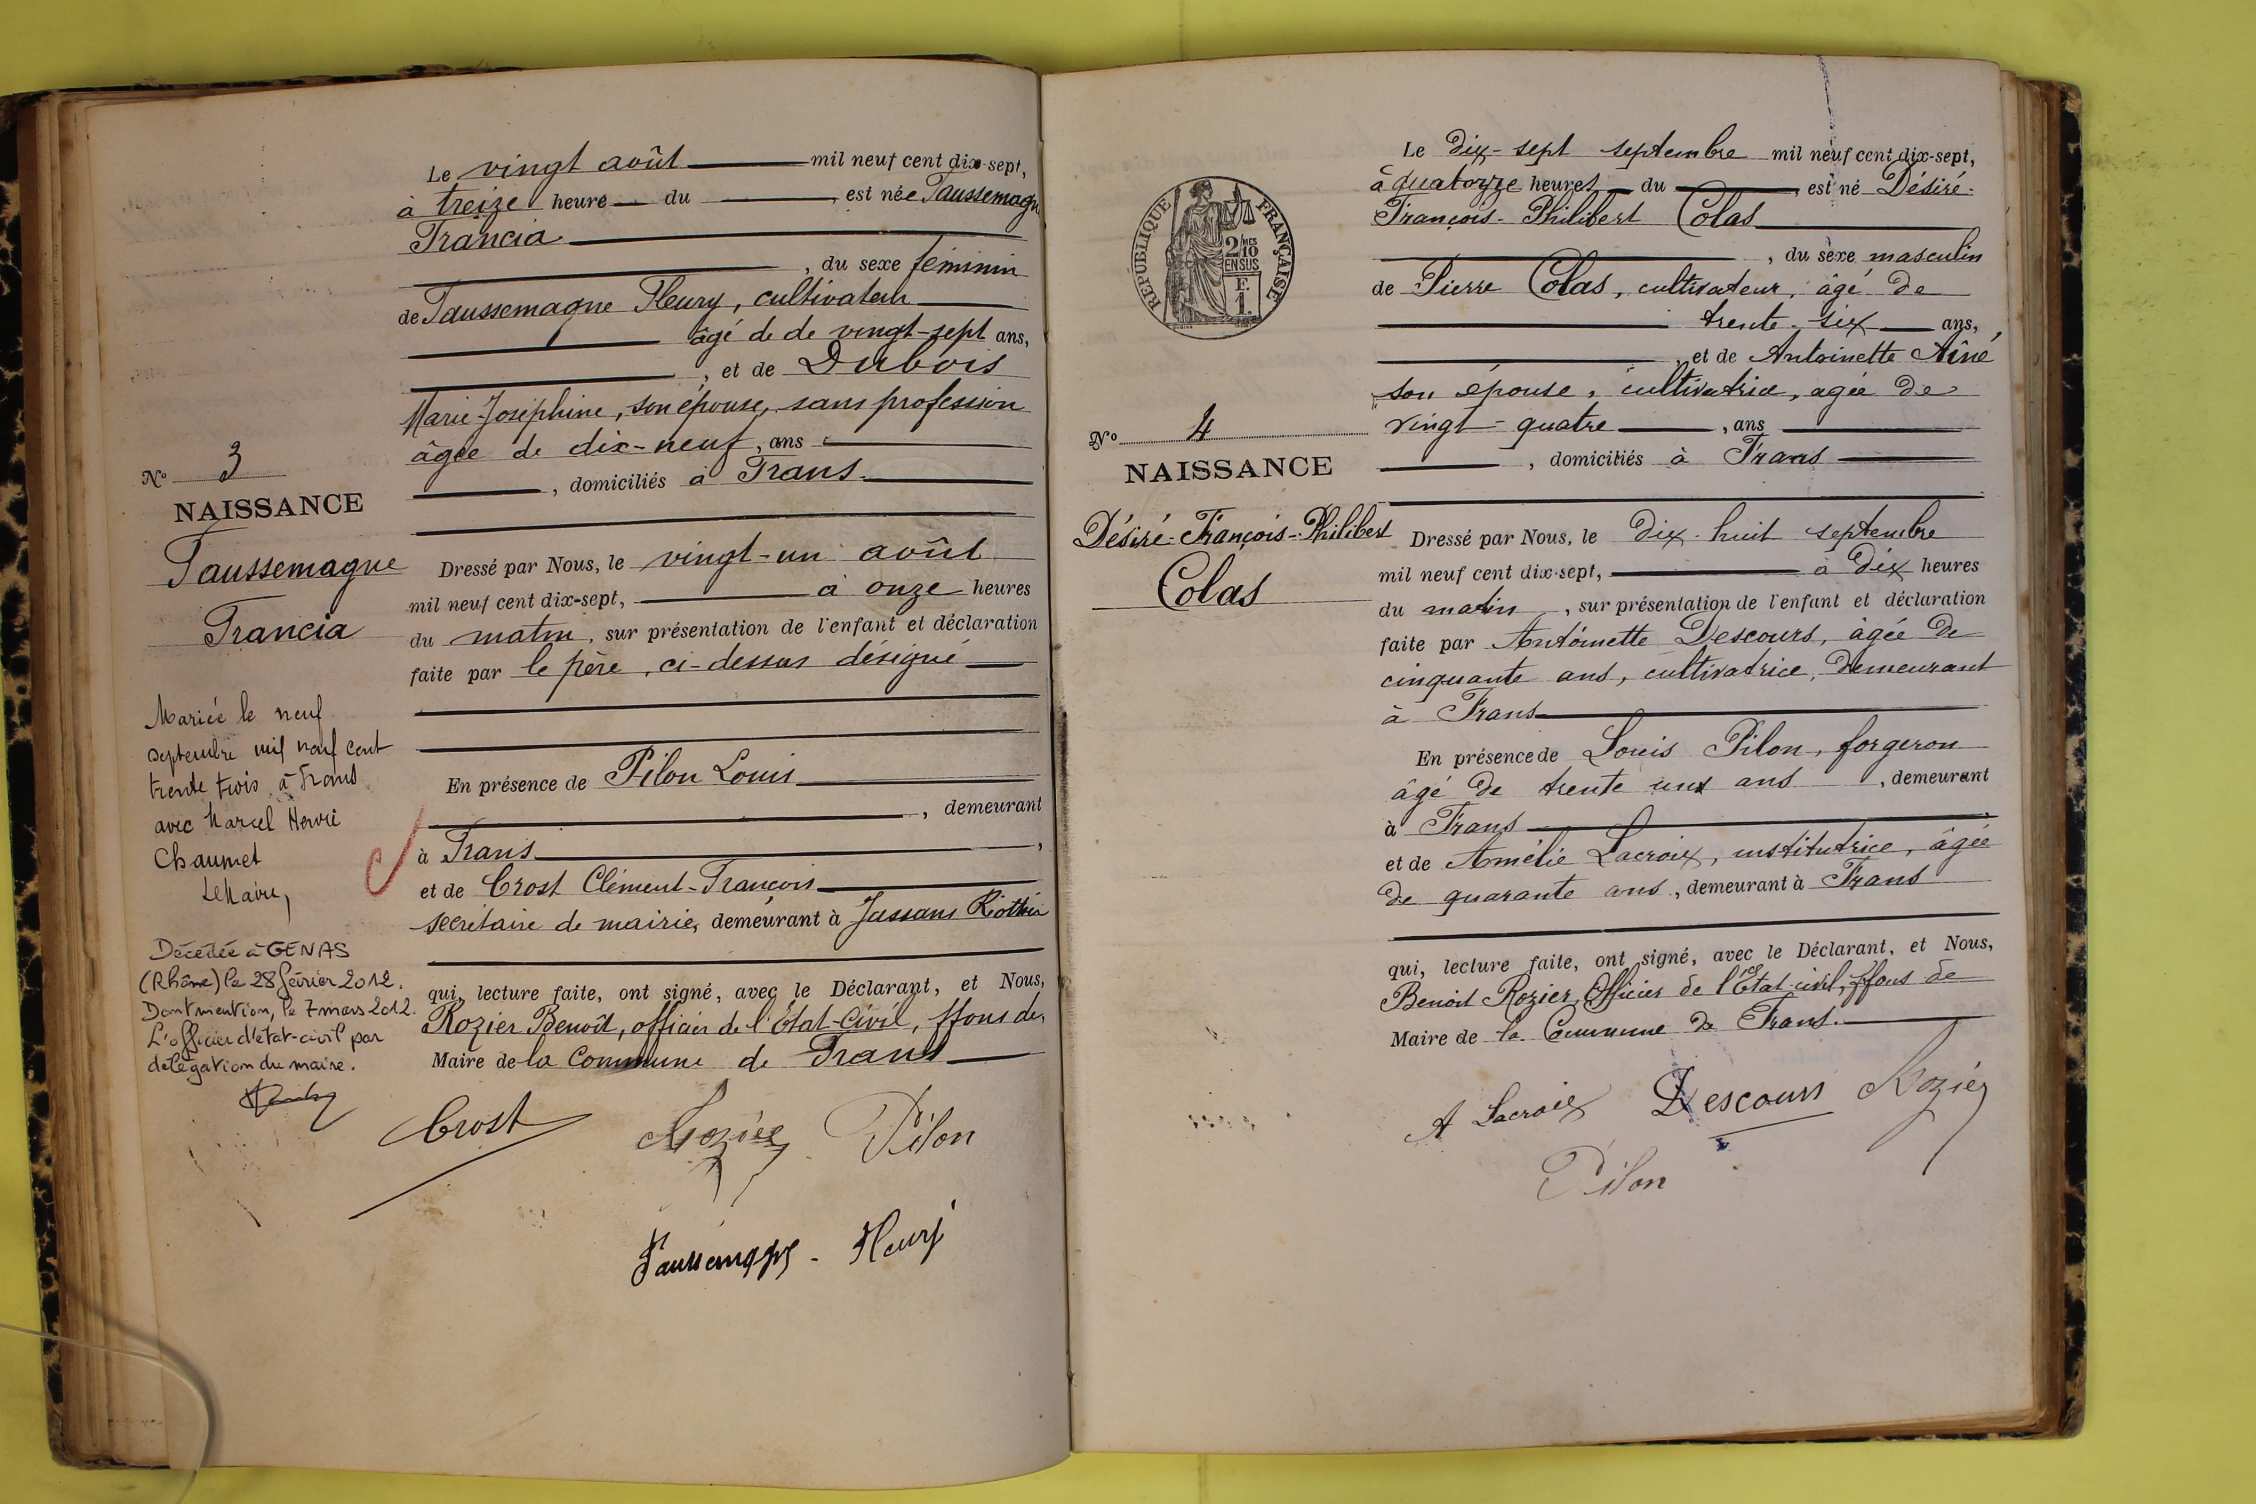 Le vingt août mil neuf cent dix-sept,
à treize heure du , est née Taussemagne
Francia
, du sexe féminin
de Taussemagne Fleury, cultivateur
âgé de de vingt-sept ans,
, et de Dubois
Marie-Joséphine, son épouse, sans profession
âgée de dix-neuf, ans
, domiciliés à Frans.
No 3
NAISSANCE
Taussemagne
Francia
Dressé par Nous, le vingt-un août
mil neuf cent dix-sept, à onze heures
du matin, sur présentation de l'enfant et déclaration
faite par le père, ci-dessus désigné
En présence de Pilon Louis
, demeurant
à Frans ,
et de Crost Clément-François
secrétaire de mairie, demeurant à Jassans Riottier
qui, lecture faite, ont signé, avec le Déclarant, et Nous,
Rozier Benoît, officier de l'État-Civil, ffons de
Maire de la Commune de Frans
Mariée le neuf
septembre mil neuf cent
trente trois à Frans
avec Marcel Henri
Chaumet
Le Maire,
Décédée à GENAS
(Rhône) le 28 février 2012.
Dont mention, le 7 mars 2012.
L'officier d'état-civil par
délégation du maire.
Crost Rozier Pilon
Taussemagne - Fleury
RÉPUBLIQUE FRANÇAISE
2/10 MES
EN SUS
F.
1.
Le Dix-sept septembre mil neuf cent dix-sept,
à quatorze heures du , est né Désiré-
François-Philibert Colas
, du sexe masculin
de Pierre Colas, cultivateur, âgé de
trente-six ans,
, et de Antoinette Aîné,
son épouse, cultivatrice, agée de
vingt-quatre , ans
, domiciliés à Frans
No 4
NAISSANCE
Désiré-François-Philibert
Colas
Dressé par Nous, le Dix-huit septembre
mil neuf cent dix-sept, à Dix heures
du matin , sur présentation de l'enfant et déclaration
faite par Antoinette Descours, âgée de
cinquante ans, cultivatrice, demeurant
à Frans
En présence de Louis Pilon, forgeron
âgé de trente ans , demeurant
à Frans
et de Amélie Lacroix, institutrice, âgée
de quarante ans, demeurant à Frans
qui, lecture faite, ont signé, avec le Déclarant, et Nous,
Benoit Rozier, Officier de l'Etat-civil, ffons de
Maire de la Commune de Frans.
A Lacroix Descours Rozier
Pilon